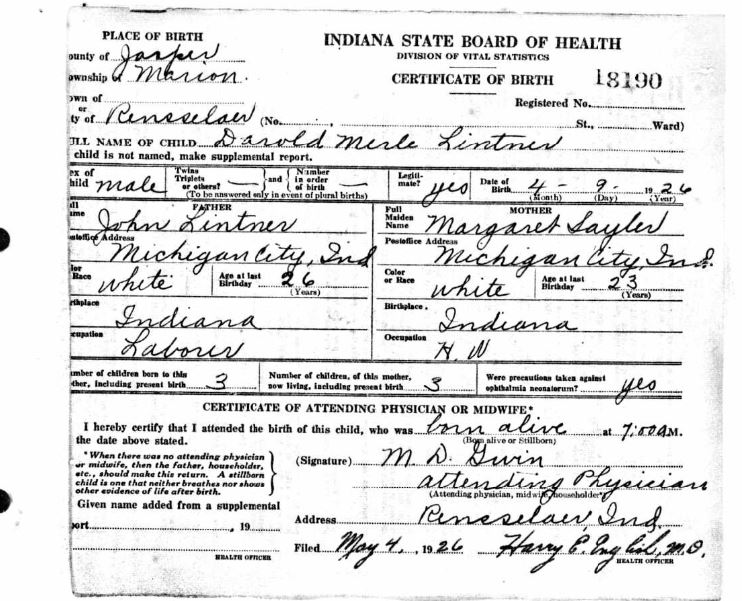 PLACE OF BIRTH
ounty of Jasper
ownship of Marion.
own of
or
ty of Rensselaer (No. , St., Ward)
INDIANA STATE BOARD OF HEALTH
DIVISION OF VITAL STATISTICS
CERTIFICATE OF BIRTH 18190
Registered No.
ULL NAME OF CHILD Darold Merle Lintner
child is not named, make supplemental report.
ex of hild male Twins Triplets or others? — and Number in order of birth — (To be answered only in event of plural births) Legiti-mate? yes Date of Birth 4 - 9 - 1926 (Month) (Day) (Year)
FATHER
ull ame John Lintner
ostoffice Address
Michigan City, Ind
olor Race white Age at last Birthday 26 (Years)
rthplace
Indiana
cupation
Laborer
MOTHER
Full Maiden Name Margaret Sayler
Postoffice Address
Michigan City, Ind.
Color or Race white Age at last Birthday 23 (Years)
Birthplace.
Indiana
Occupation
H. W
umber of children born to this other, including present birth 3 Number of children, of this mother, now living, including present birth 3 Were precautions taken against ophthalmia neonatorum? yes
CERTIFICATE OF ATTENDING PHYSICIAN OR MIDWIFE*
I hereby certify that I attended the birth of this child, who was born alive at 7:00 A.M.
the date above stated. (Born alive or Stillborn)
*When there was no attending physician
or midwife, then the father, householder,
etc., should make this return. A stillborn
child is one that neither breathes nor shows
other evidence of life after birth.
(Signature) M. D. Gwin
attending Physician
(Attending physician, midwife, householder*)
Given name added from a supplemental
port , 19
HEALTH OFFICER
Address Rensselaer, Ind.
Filed May 4, 1926 Harry E. English, M.D.
HEALTH OFFICER